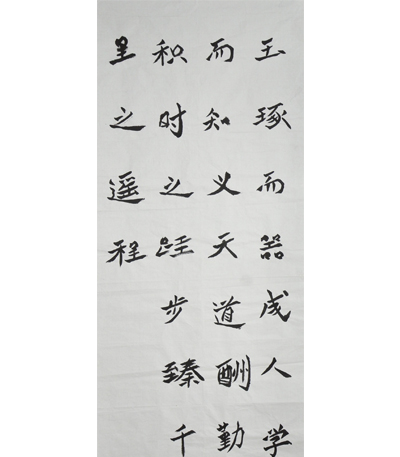 玉琢而器成人学
而知义天道酬勤
积时之跬步臻千
里之遥程